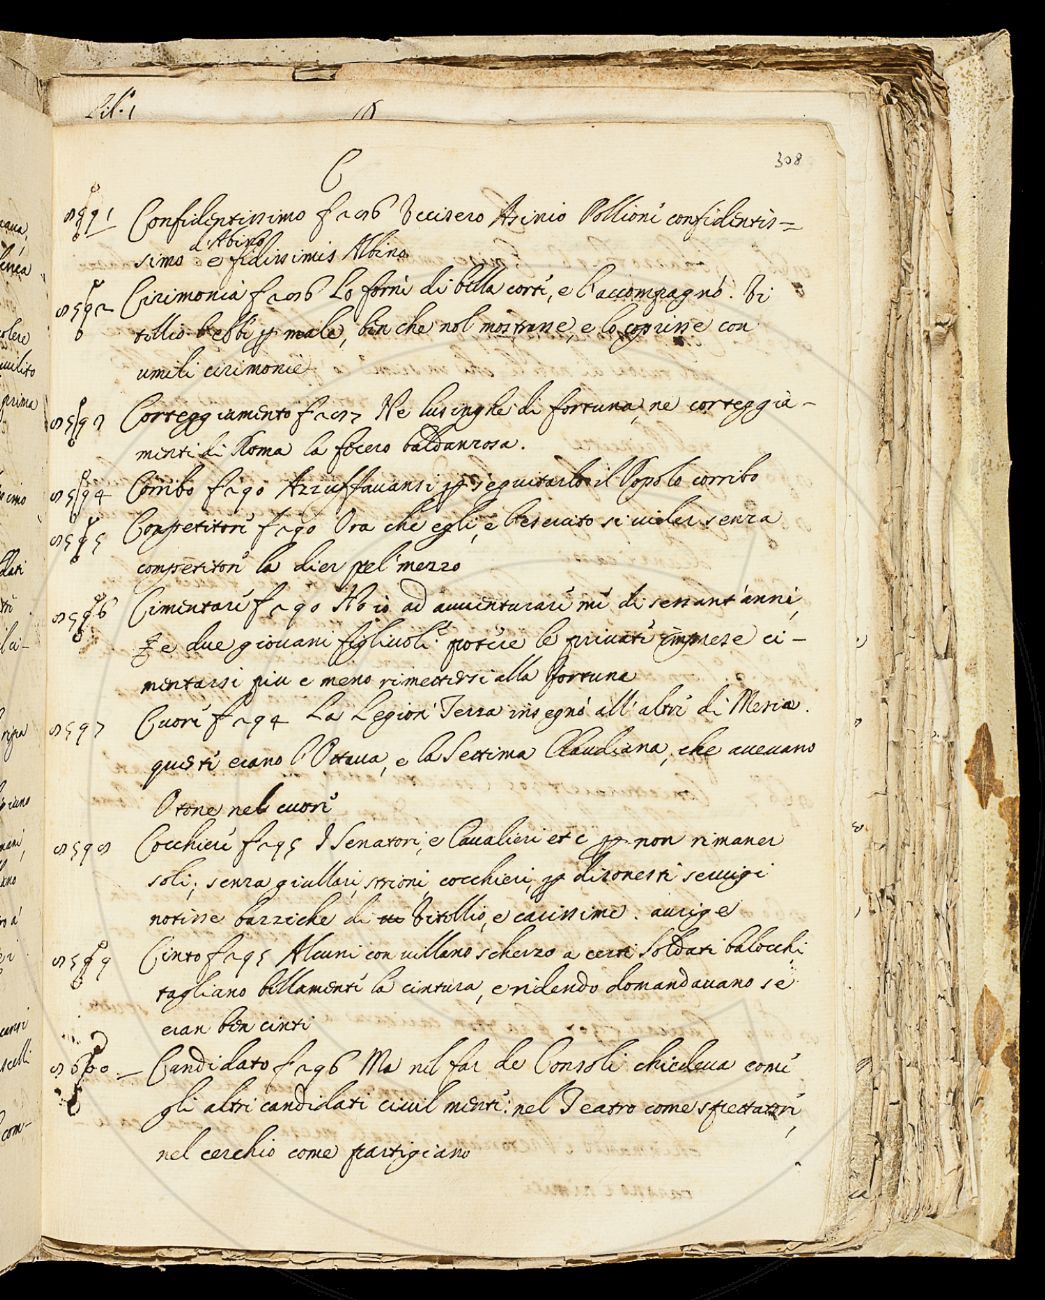 C
308
8591 Confidentissimo f 206 Uccisero Asinio Pollione confidentis=
d'Albino
simo e fidissimis Albino
8592 Cirimonia f 206 Lo fornì di bella corte, e l'accompagnò. Vi
tellio l'ebbe per male, ben che nol mostrasse, e lo coprisse con
umili cirimonie
8593 Corteggiamento f 207 Ne lusinghe di fortuna, ne corteggia-
menti di Roma la fecero baldanzosa.
8594 Corribo f 290 Azzuffavansi per seguitarlo il Popolo corribo
8595 Competitori f 290 Ora che egli, e l'esercito si voler senza
competitori la dier pel mezzo
8596 Cimentare f 290 Ho io ad avventurare me di sessant'anni,
e due giovani figlivoli? potersi le private imprese ci-
mentarsi piu e meno rimettersi alla fortuna
8597 Cuore f 294 La Legion Terza insegnò all'altre di Mesia.
queste erano l'Ottava, e la Settima Claudiana, che avevano
Otone nel cuore
8598 Cocchieri f 295 I Senatori, e Cavalieri etc per non rimaner
soli; senza giullari, strioni cocchieri, per disonesti servigi
notisse bazziche di Vitellio, e carissime. aurige
8599 Cinto f 295 Alcuni con villano scherzo a certi Soldati balocchi,
tagliano bellamente la cintura, e ridendo domandavano se
eran ben cinti
8600 Candidato f 296 Ma nel far de Consoli chiedeva come
gli altri candidati civilmente: nel Teatro come spettatore,
nel cerchio come partigiano